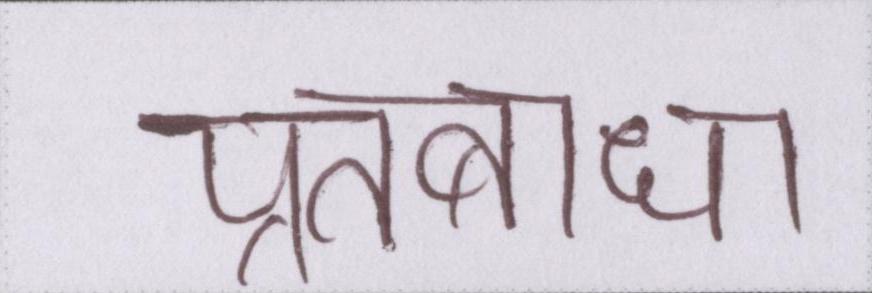 प्रतबाधा